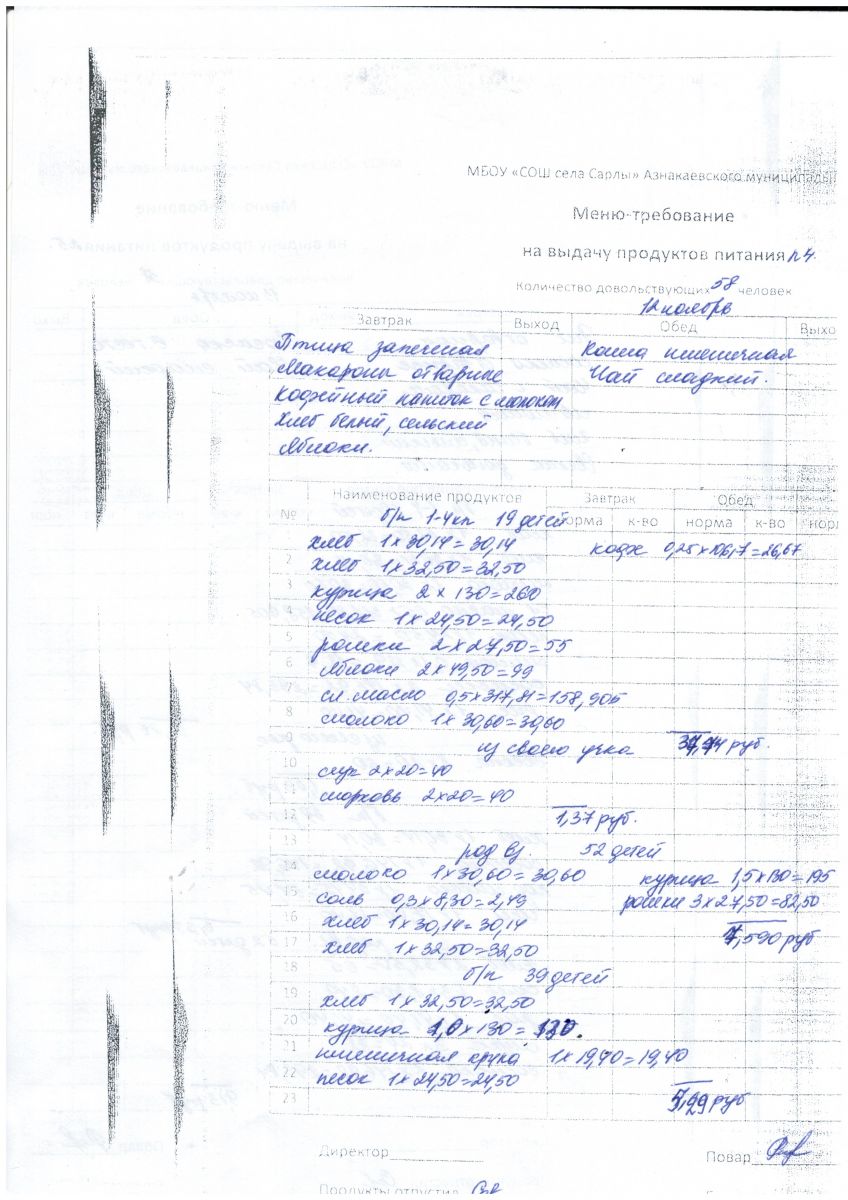 МБОУ «СОШ села Сарлы» Азнакаевского муниципаль
Меню-требование
на выдачу продуктов питания №4
Количество довольствующих 58 человек
12 ноября
Завтрак Выход Обед Выхо
Птица запеченая Каша пшеничная
Макароны отварные Чай сладкий.
Кофейный напиток с молоком
Хлеб белый, сельский
Яблоки.
№ Наименование продуктов Завтрак Обед
норма к-во норма к-во нор
б/п 1-4кл 19 детей
хлеб 1х30,14=30,14 кофе 0,25х106,7=26,67
2 хлеб 1х32,50=32,50
3 курица 2х130=260
песок 1х24,50=24,50
5 рожки 2х27,50=55
6 яблоки 2х49,50=99
7 сл масло 0,5х317,81=158,905
8 молоко 1х30,60=30,60
9 из своего уч-ка руб.
10 лук 2х20=40
11 морковь 2х20=40
12 1,37 руб.
13 род вз. 52 детей
14 молоко 1х30,60=30,60 курица 1,5х130=195
15 соль 0,3х8,30=2,49 рожки 3х27,50=82,50
16 хлеб 1х30,14=30,14
17 хлеб 1х32,50=32,50 7,590 руб
18 б/п 39 детей
19 хлеб 1х32,50=32,50
20 курица 1,0х130=130.
21 пшеничная крупа 1х19,40=19,40
22 песок 1х24,50=24,50
23 руб
Директор__________ Повар
Продукты отпустил